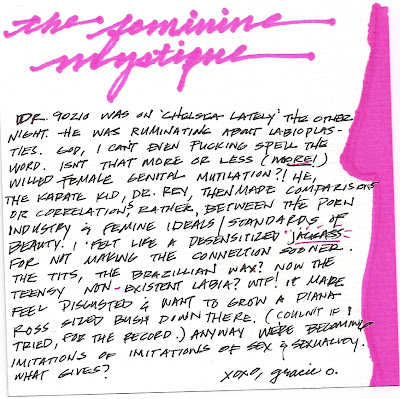 the feminine
mystique
DR. 90210 WAS ON 'CHELSEA LATELY' THE OTHER
NIGHT. HE WAS RUMINATING ABOUT LABIOPLAS-
TIES. GOD, I CAN'T EVEN FUCKING SPELL THE
WORD. ISN'T THAT MORE OR LESS (MORE!)
WILLED FEMALE GENITAL MUTILATION?! HE,
THE KARATE KID, DR. REY, THEN MADE COMPARISONS
OR CORRELATIONS, RATHER, BETWEEN THE PORN
INDUSTRY & FEMINE IDEALS/STANDARDS OF
BEAUTY. I FELT LIKE A DESENSITIZED JACKASS
FOR NOT MAKING THE CONNECTION SOONER.
THE TITS, THE BRAZILLIAN WAX? NOW THE
TEENSY NON-EXISTENT LABIA? WTF! IT MADE
FEEL DISGUSTED & WANT TO GROW A DIANA
ROSS SIZED BUSH DOWN THERE. (COULDN'T IF I
TRIED, FOR THE RECORD.) ANYWAY WE'RE BECOMING
IMITATIONS OF IMITATIONS OF SEX & SEXUALITY.
WHAT GIVES?
xoxo, gracie o.